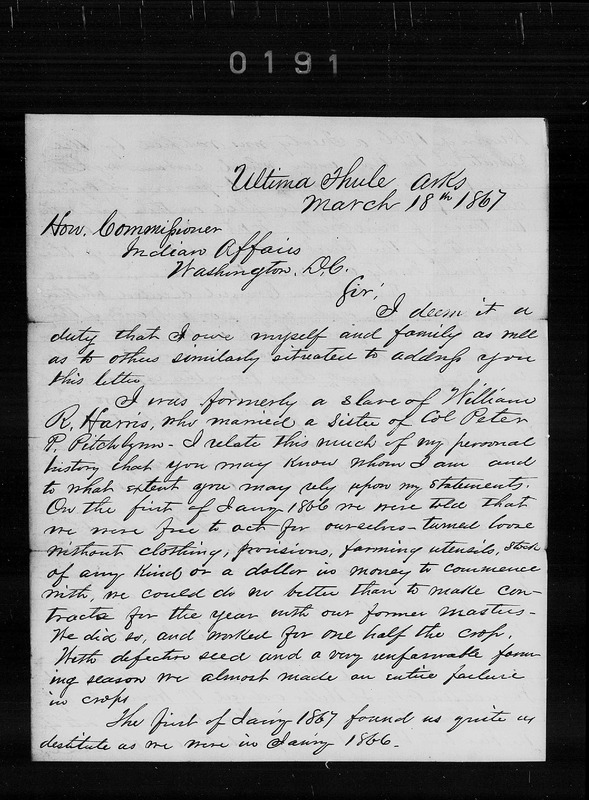 0191
Ultima Thule Arks
March 18th 1867
Hon. Commissioner
Indian Affairs
Washington. D.C.
Sir,
I deem it a
duty that I owe myself and family as well
as to others similarly situated to address you
this letter
I was formerly a slave of William
R. Harris, who married a Sister of Col Peter
P. Pitchlynn - I relate this much of my personal
history that you may know whom I am and
to what extent you may rely upon my statements.
On the first of Jan'y 1866 we were told that
we were free to act for ourselves - turned loose
without clothing, provisions, farming utensils, stock
of any kind or a dollar in money to commence
with, we could do no better than to make con-
tracts for the year with our former masters -
We did so, and worked for one half the crop.
With defective seed and a very unfavorable farm-
ing season we almost made an entire failure
in crops
The first of Jan'y 1867 found us quite as
destitute as we were in Jan'y 1866 -